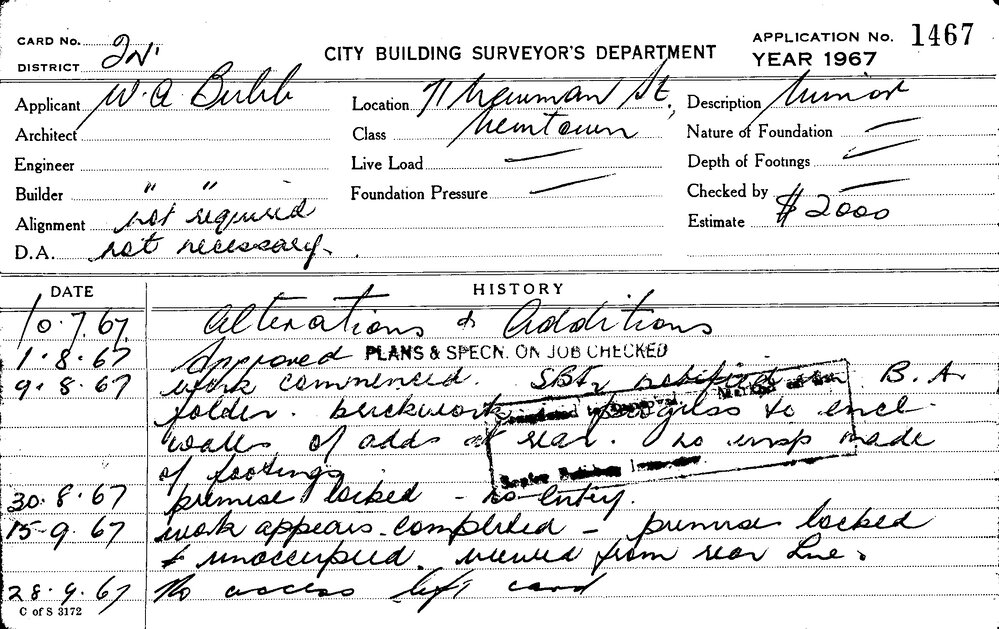 CARD No.
DISTRICT
CITY BUILDING SURVEYOR'S DEPARTMENT
APPLICATION No. 1467
YEAR 1967
Applicant W. A. Bubb
Location Newman St.,
Description Minor
Architect
Class Newtown
Nature of Foundation —
Engineer
Live Load —
Depth of Footings —
Builder " "
Foundation Pressure —
Checked by —
Alignment not required
Estimate $2000
D.A. not necessary.
DATE HISTORY
10.7.67 Alterations & Additions
1.8.67 Approved PLANS & SPECN. ON JOB CHECKED
9.8.67 work commenced. B.A.
folder. brickwork in progress to encl.
walls of adds at rear. No insp made
of footings
Senior Building
30.8.67 premise locked - no entry.
15-9.67 work appears completed - premise locked
& unoccupied. viewed from rear Lne.
28.9.67 No access left card
C of S 3172